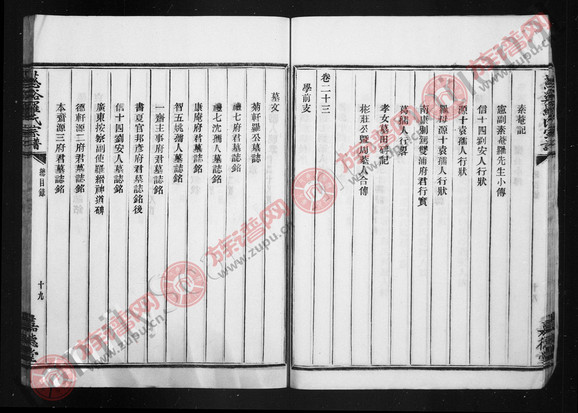 素菴記
憲副素菴羅先生小傳
信十四劉安人行狀
源十袁孺人行狀
源十袁孺人行狀
南康劉駕部雙浦府君行實
葛孺人行畧
孝女墓田碑記
彬莊公暨周孺人合傳
卷二十三
學前支
墓文
菊軒羅公墓誌
禮七府君墓誌銘
禮七沈孺人墓誌銘
康庵府君墓誌銘
智五姚孺人墓誌銘
一齋主事府君墓誌銘
書夏官邦彥府君墓誌銘後
信十四劉安人墓誌銘
廣東按察副使羅翁神道碑
德軒源二府君墓誌銘
本齋源三府君墓誌銘
羅氏宗譜
總目錄
十九
嘉德堂
族譜网
www.zupu.cn